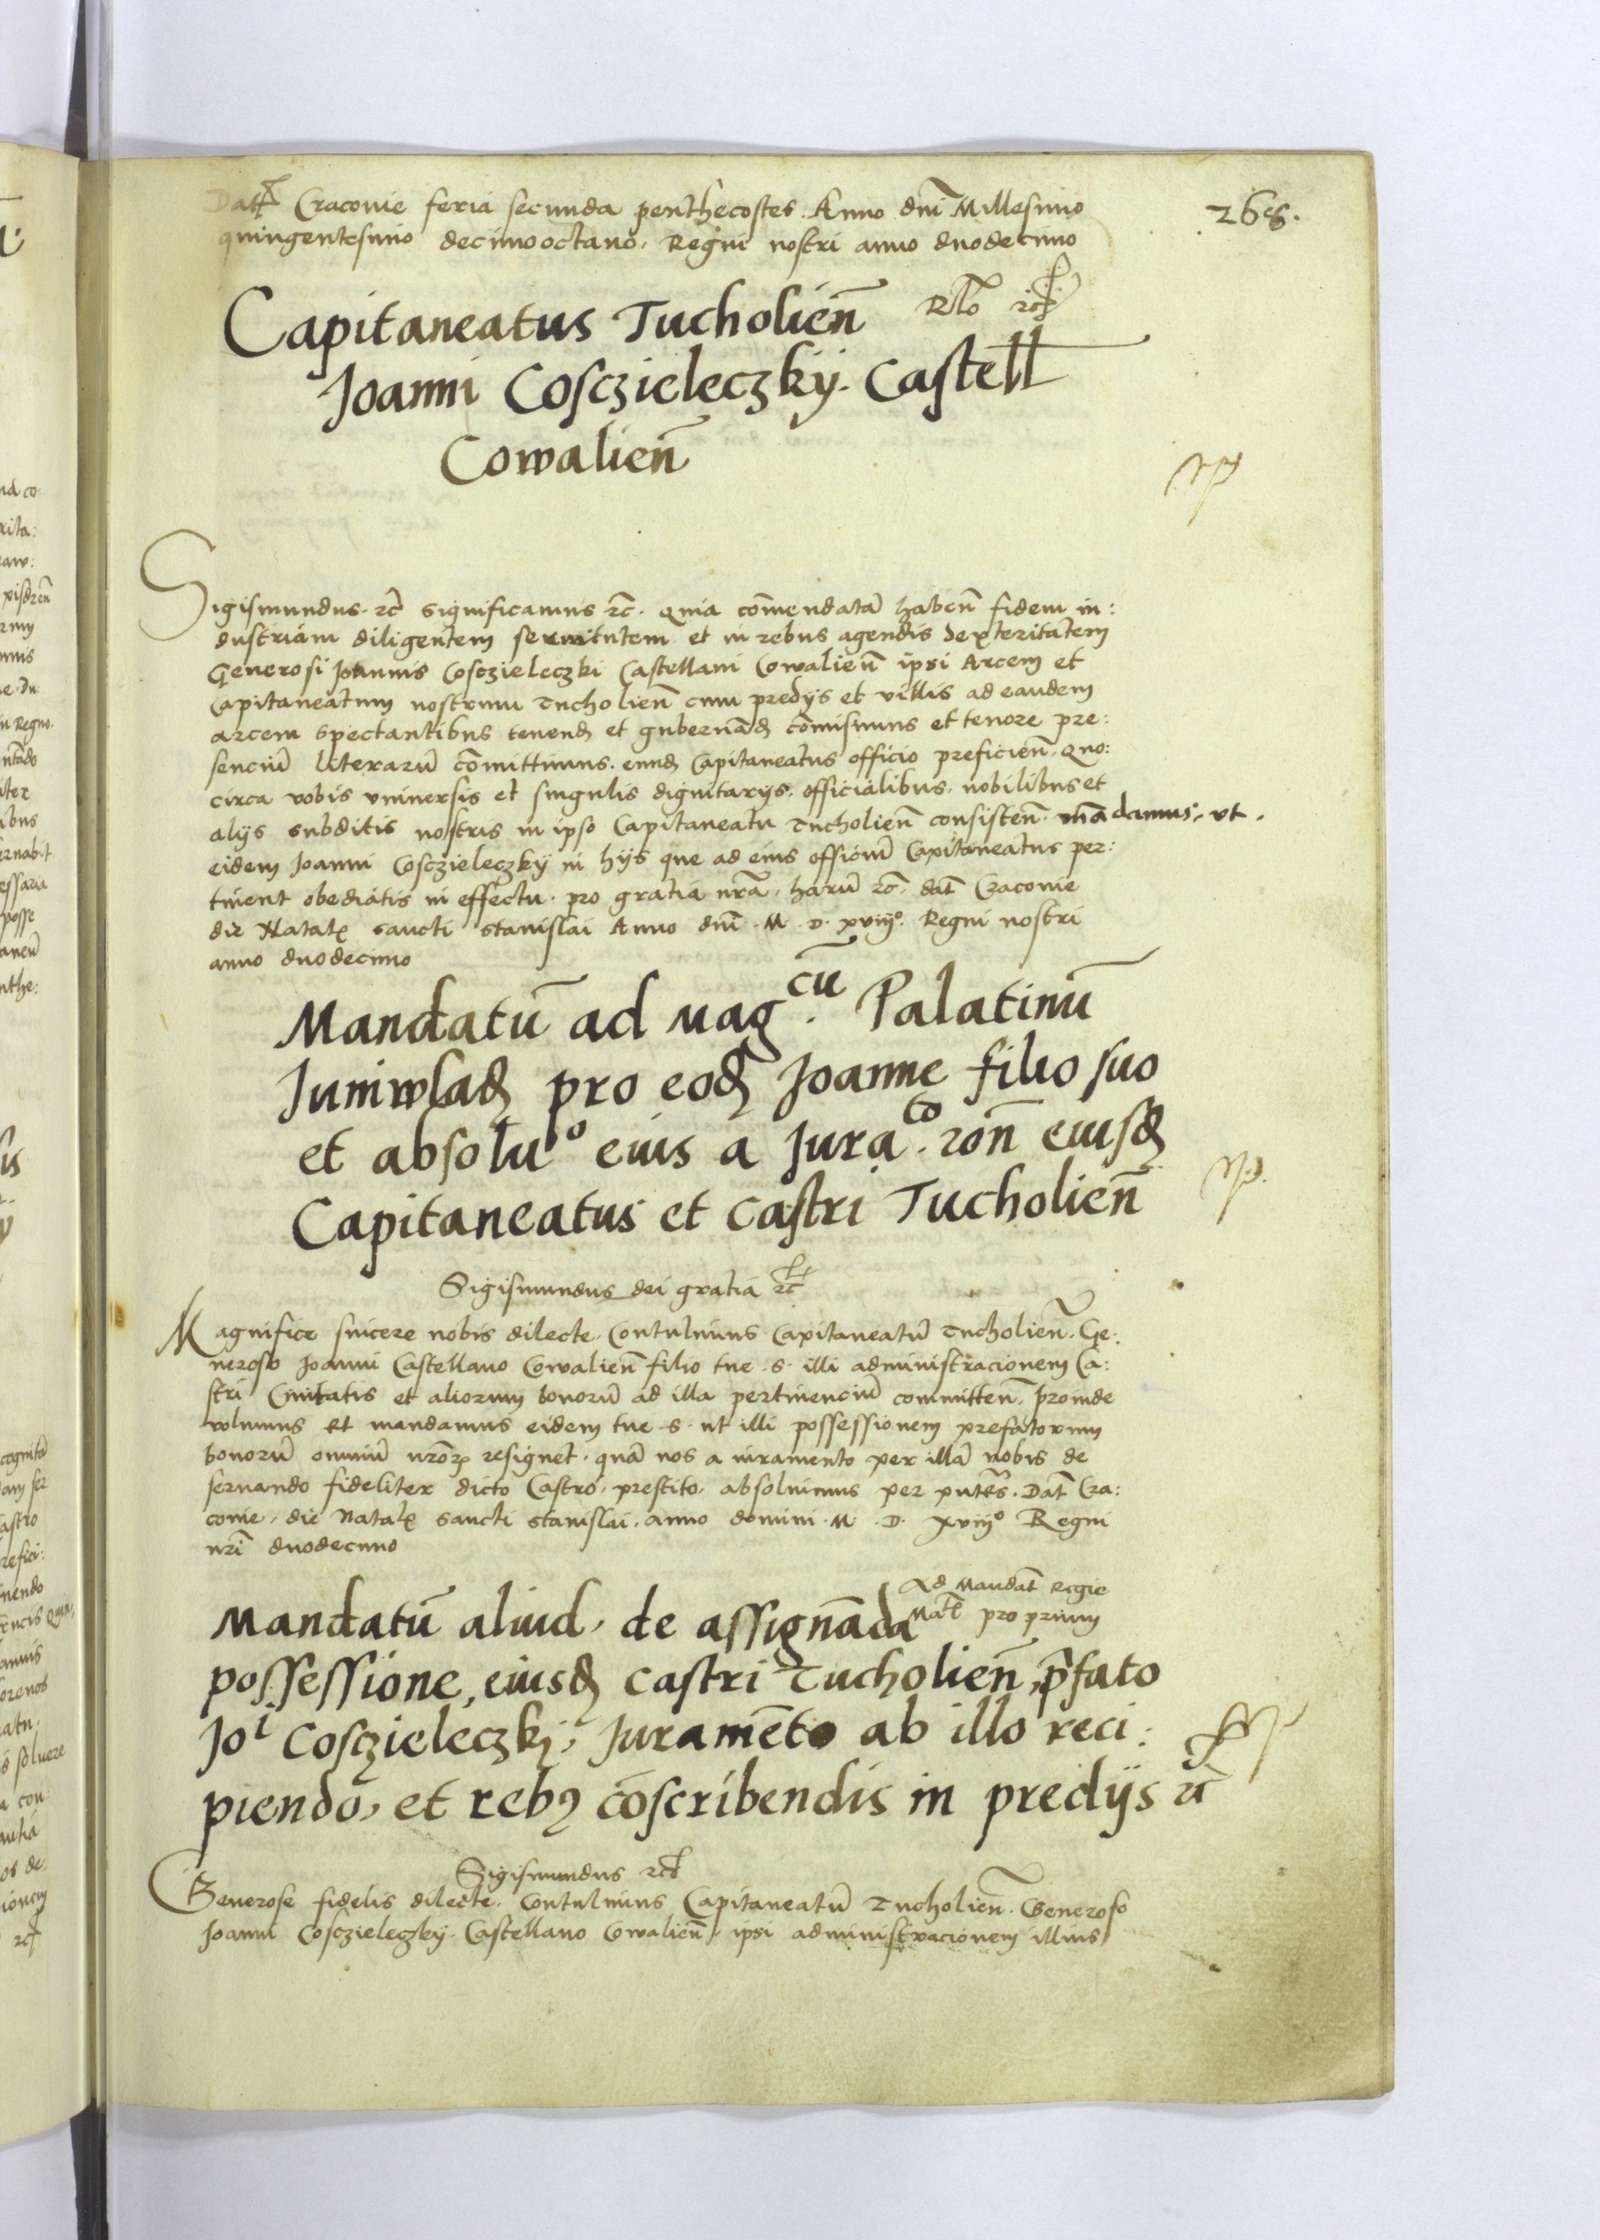 Datt Craconie feria secunda penthecostes. Anno dni Millesimo
quingentesimo decimooctavo. Regni nostri anno duodecimo
268.
Capitaneatus Tucholien̄ Rlo rc
Joanni Cosczieleczkÿ. Castell
Cowalien̄
Sigismundus. rc̄ significamus rc̄. quia com̄endatā haben̄ fidem in:
dustriam diligentem servitutem et in rebus agendis dexteritatem
Generosi Joannis Cosczieleczki Castellani Cowalien̄ ipsi Arcem et
Capitaneatum nostrum Tucholien̄ cum predijs et villis ad eandem
arcem spectantibus tenend et gubernād com̄isimus et tenore pre:
senciū literarū com̄ittimus. eund Capitaneatus officio preficien̄. quo:
circa vobis universis et singulis dignitarijs. officialibus. nobilibus et
alijs subditis nostris in ipso Capitaneatu Tucholien̄ consisten̄. mādamus, ut.
eidem Joanni Cosczieleczkÿ in hijs que ad eius officiū Capitaneatus per:
tinent obediatis in effectu. pro gratia nrā. harū rc̄. dat̄ Craconie
die Natal sancti Stanislai Anno dni. M. D. xviijº. Regni nostri
anno duodecimo
Mandatū ad Mag.cū Palatinū
Juniwlad pro eod Joanne filio suo
et absoluº eius a Jura.to rōn eiusd
Capitaneatus et castri Tucholien̄
Sigismundus dei gratia rc
Magnifice sincere nobis dilecte. Contulimus Capitaneatū Tucholien̄. Ge:
neroso Joanni Castellano Cowalien̄ filio tue. s. illi administracionem Ca:
stri Civitatis et aliorum bonorū ad illa pertinenciū committen̄. proinde
volumus et mandamus eidem tue. s. ut illi possessionem prefatorum
bonorū omniū nrōr resignet. quā nos a iuramento per illā nobis de
servando fideliter dicto Castro. prestito. absolvimus per pntes. Dat̄ Cra:
conie. die Natal sancti Stanislai. anno domini. M. D. xviijº Regni
nrī duodecimo
Ad Mandat̄ Regie
Mat̄ proprium
Mandatū aliud. de assignāda
possessione, eiusd castri Tucholien̄, p̄fato
Joi Cosczieleczkj. Juramēto ab illo reci:
piendo, et rebꝯ cōscribendis in predijs rc̄
Sigismundus rc
Generose fidelis dilecte. Contulimus Capitaneatū Tucholien̄. Generoso
Joanni Cosczieleczkÿ. Castellano Cowalien̄. ipsi administracionem illius